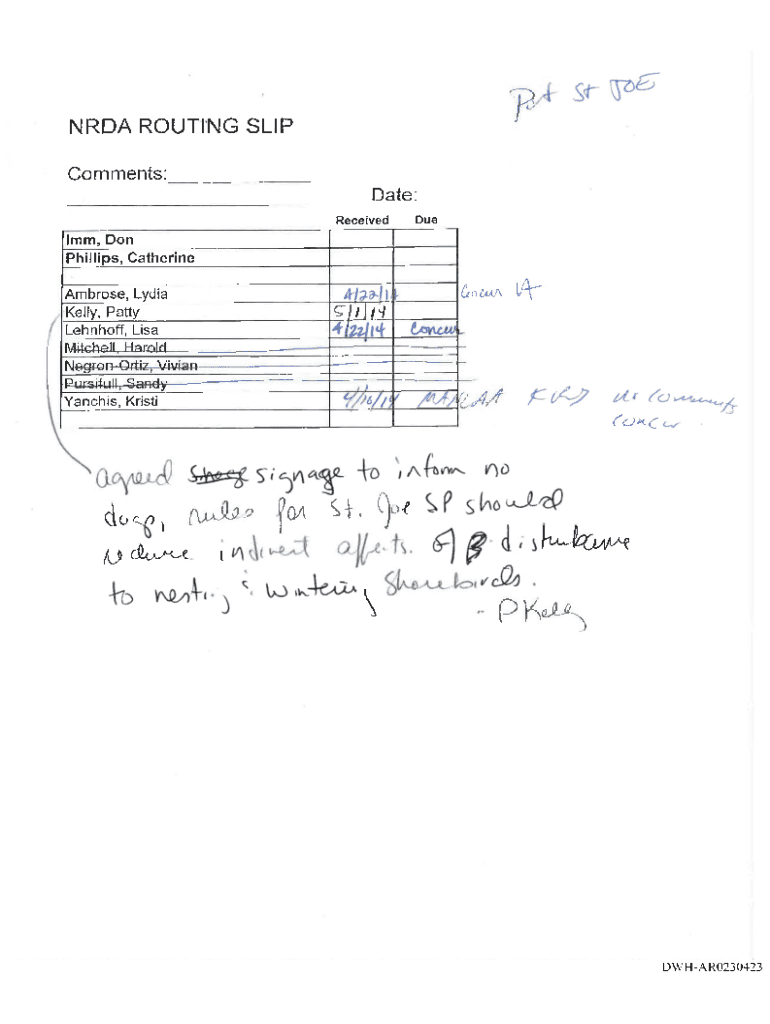 Port St JOE
NRDA ROUTING SLIP
Comments:
Date:
Received Due
Imm, Don
Phillips, Catherine
Ambrose, Lydia 4/22/14 Concur LA
Kelly, Patty 5/1/14
Lehnhoff, Lisa 4/22/14 Concur
Mitchell, Harold
Negron-Ortiz, Vivian
Pursifull, Sandy
Yanchis, Kristi 4/16/14 MANLAA no comments
concur
agreed signage to inform no
dogs, rules for St. Joe SP should
reduce indirect affects of disturbance
to nesting & wintering shorebirds.
- P Kelly
DWH-AR0230423